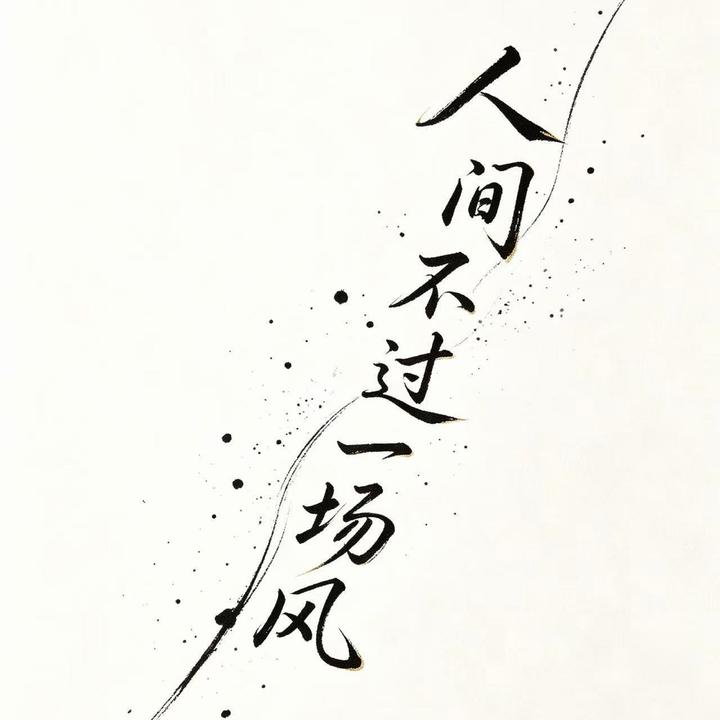 人间不过一场风